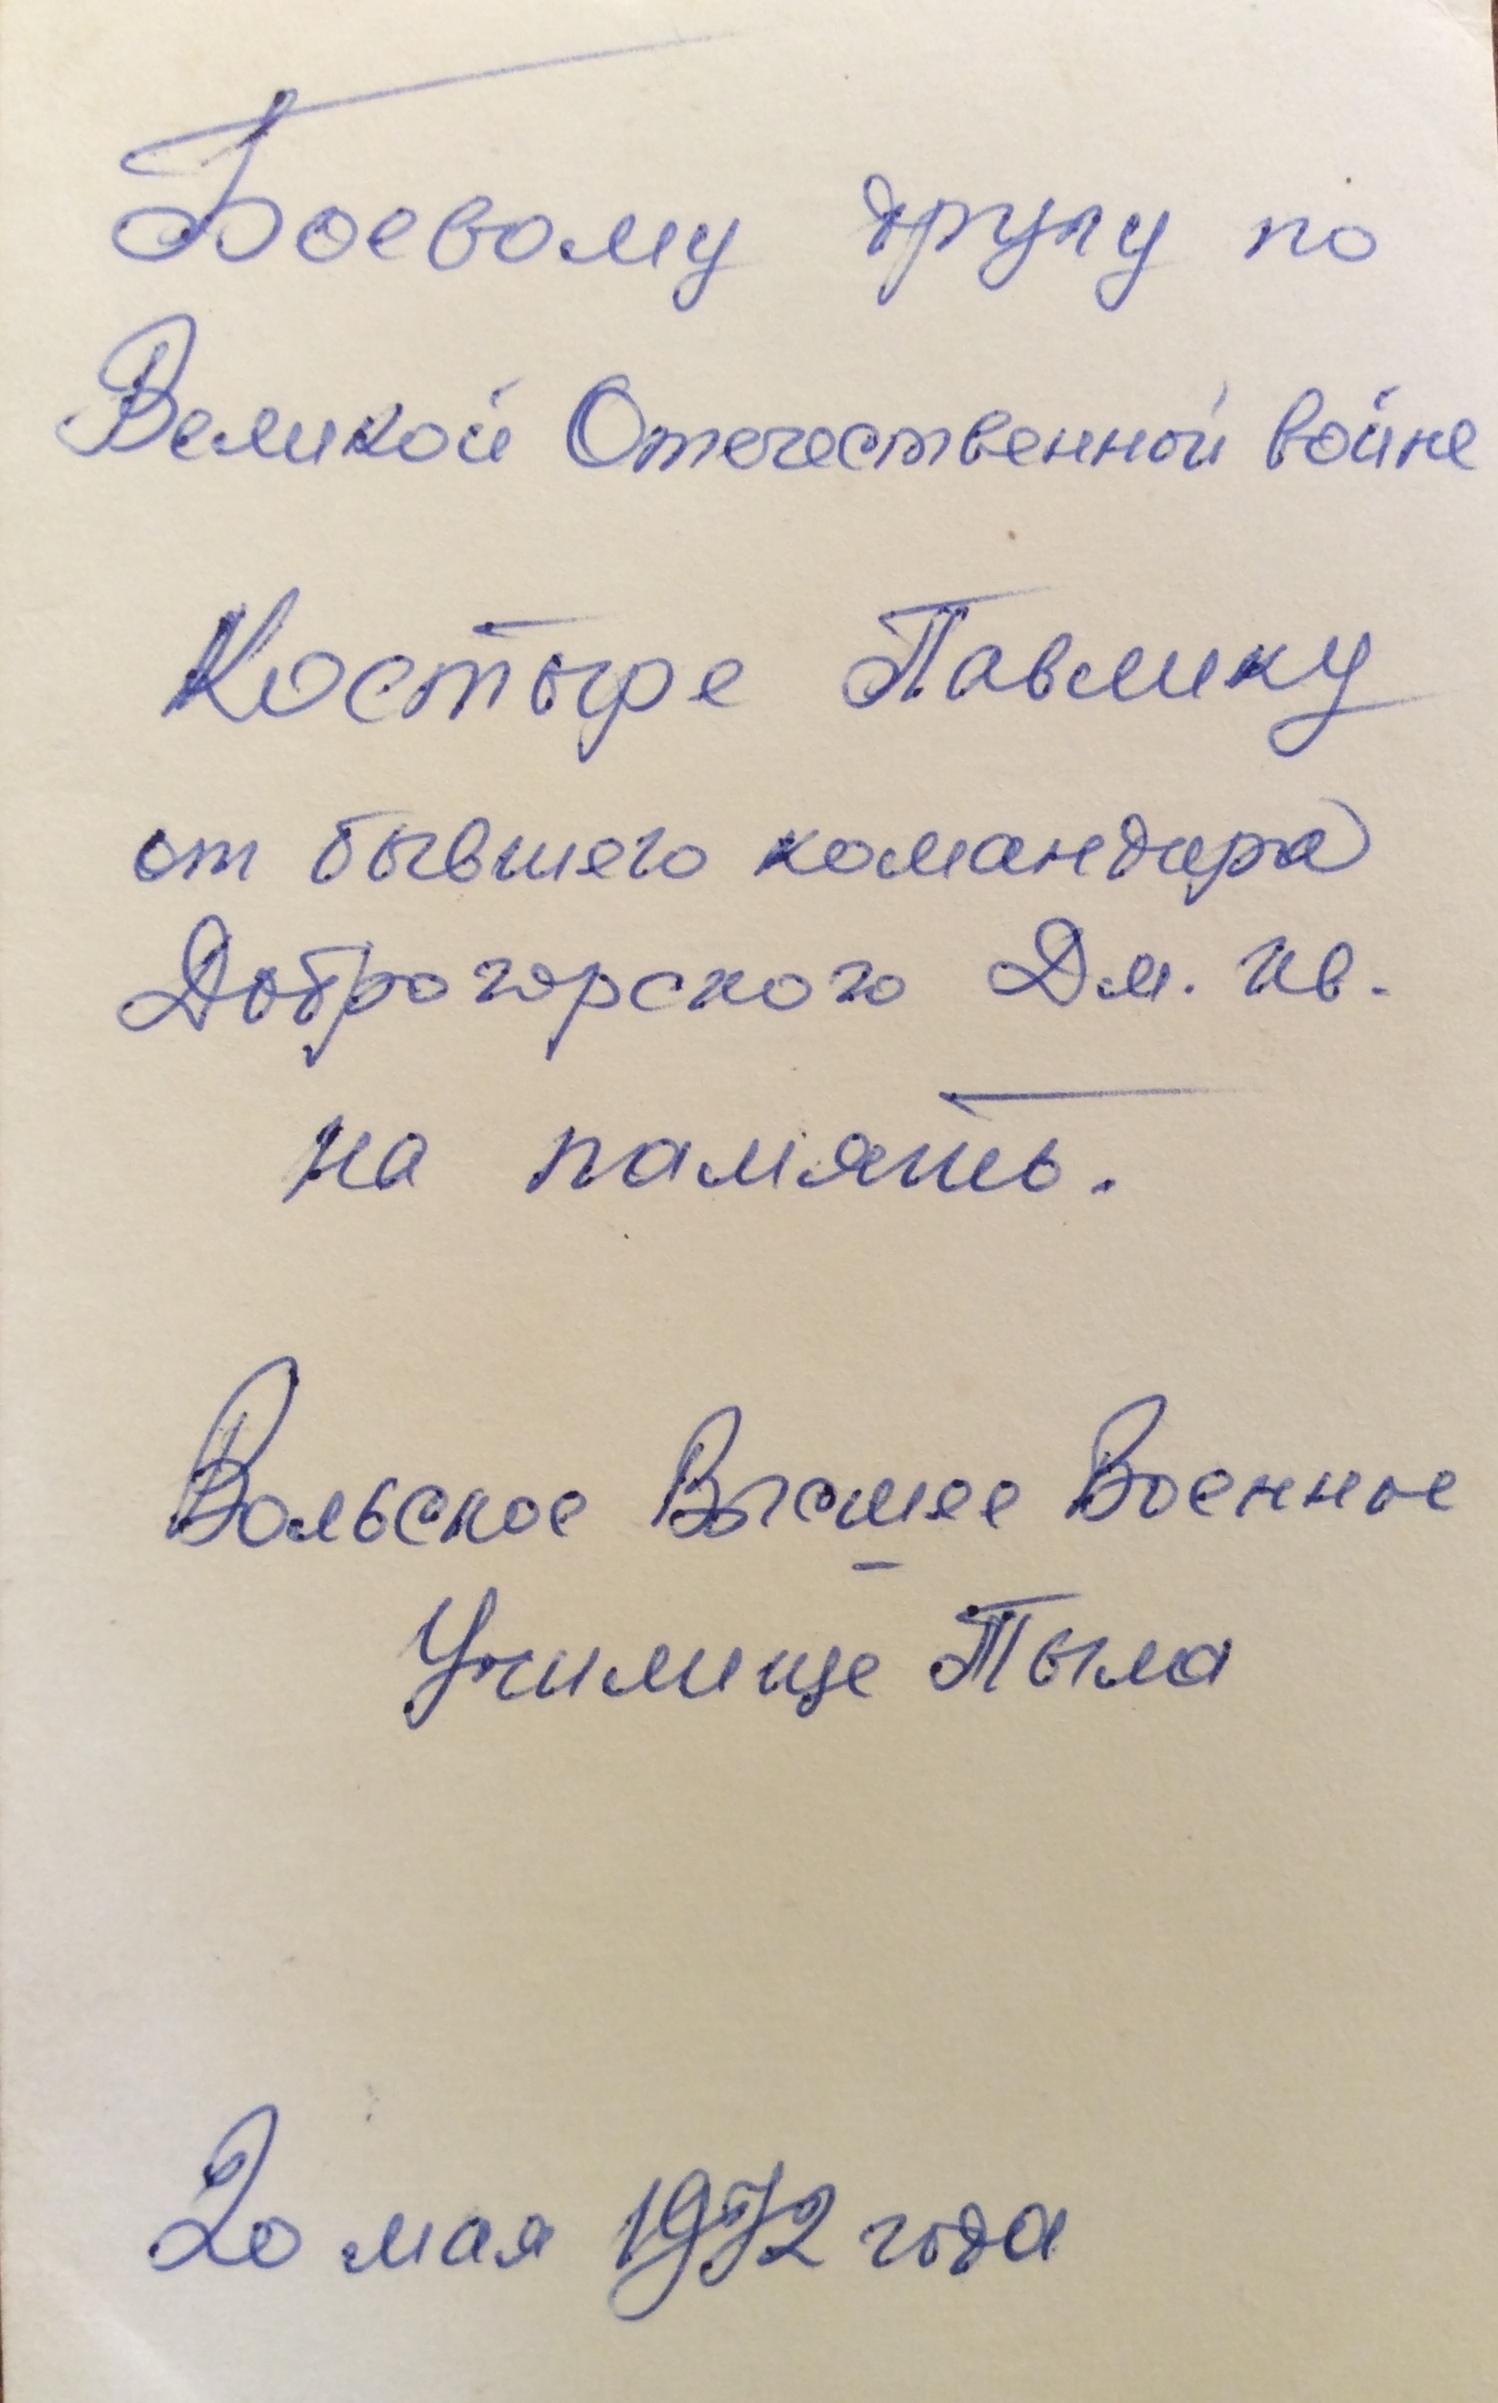 Боевому другу по
Великой Отечественной войне
Костыре Павлику
от бывшего командира
Доброгорского Дм. Ив.
на память.
Вольское Высшее Военное
Училище Тыла
20 мая 1972 года